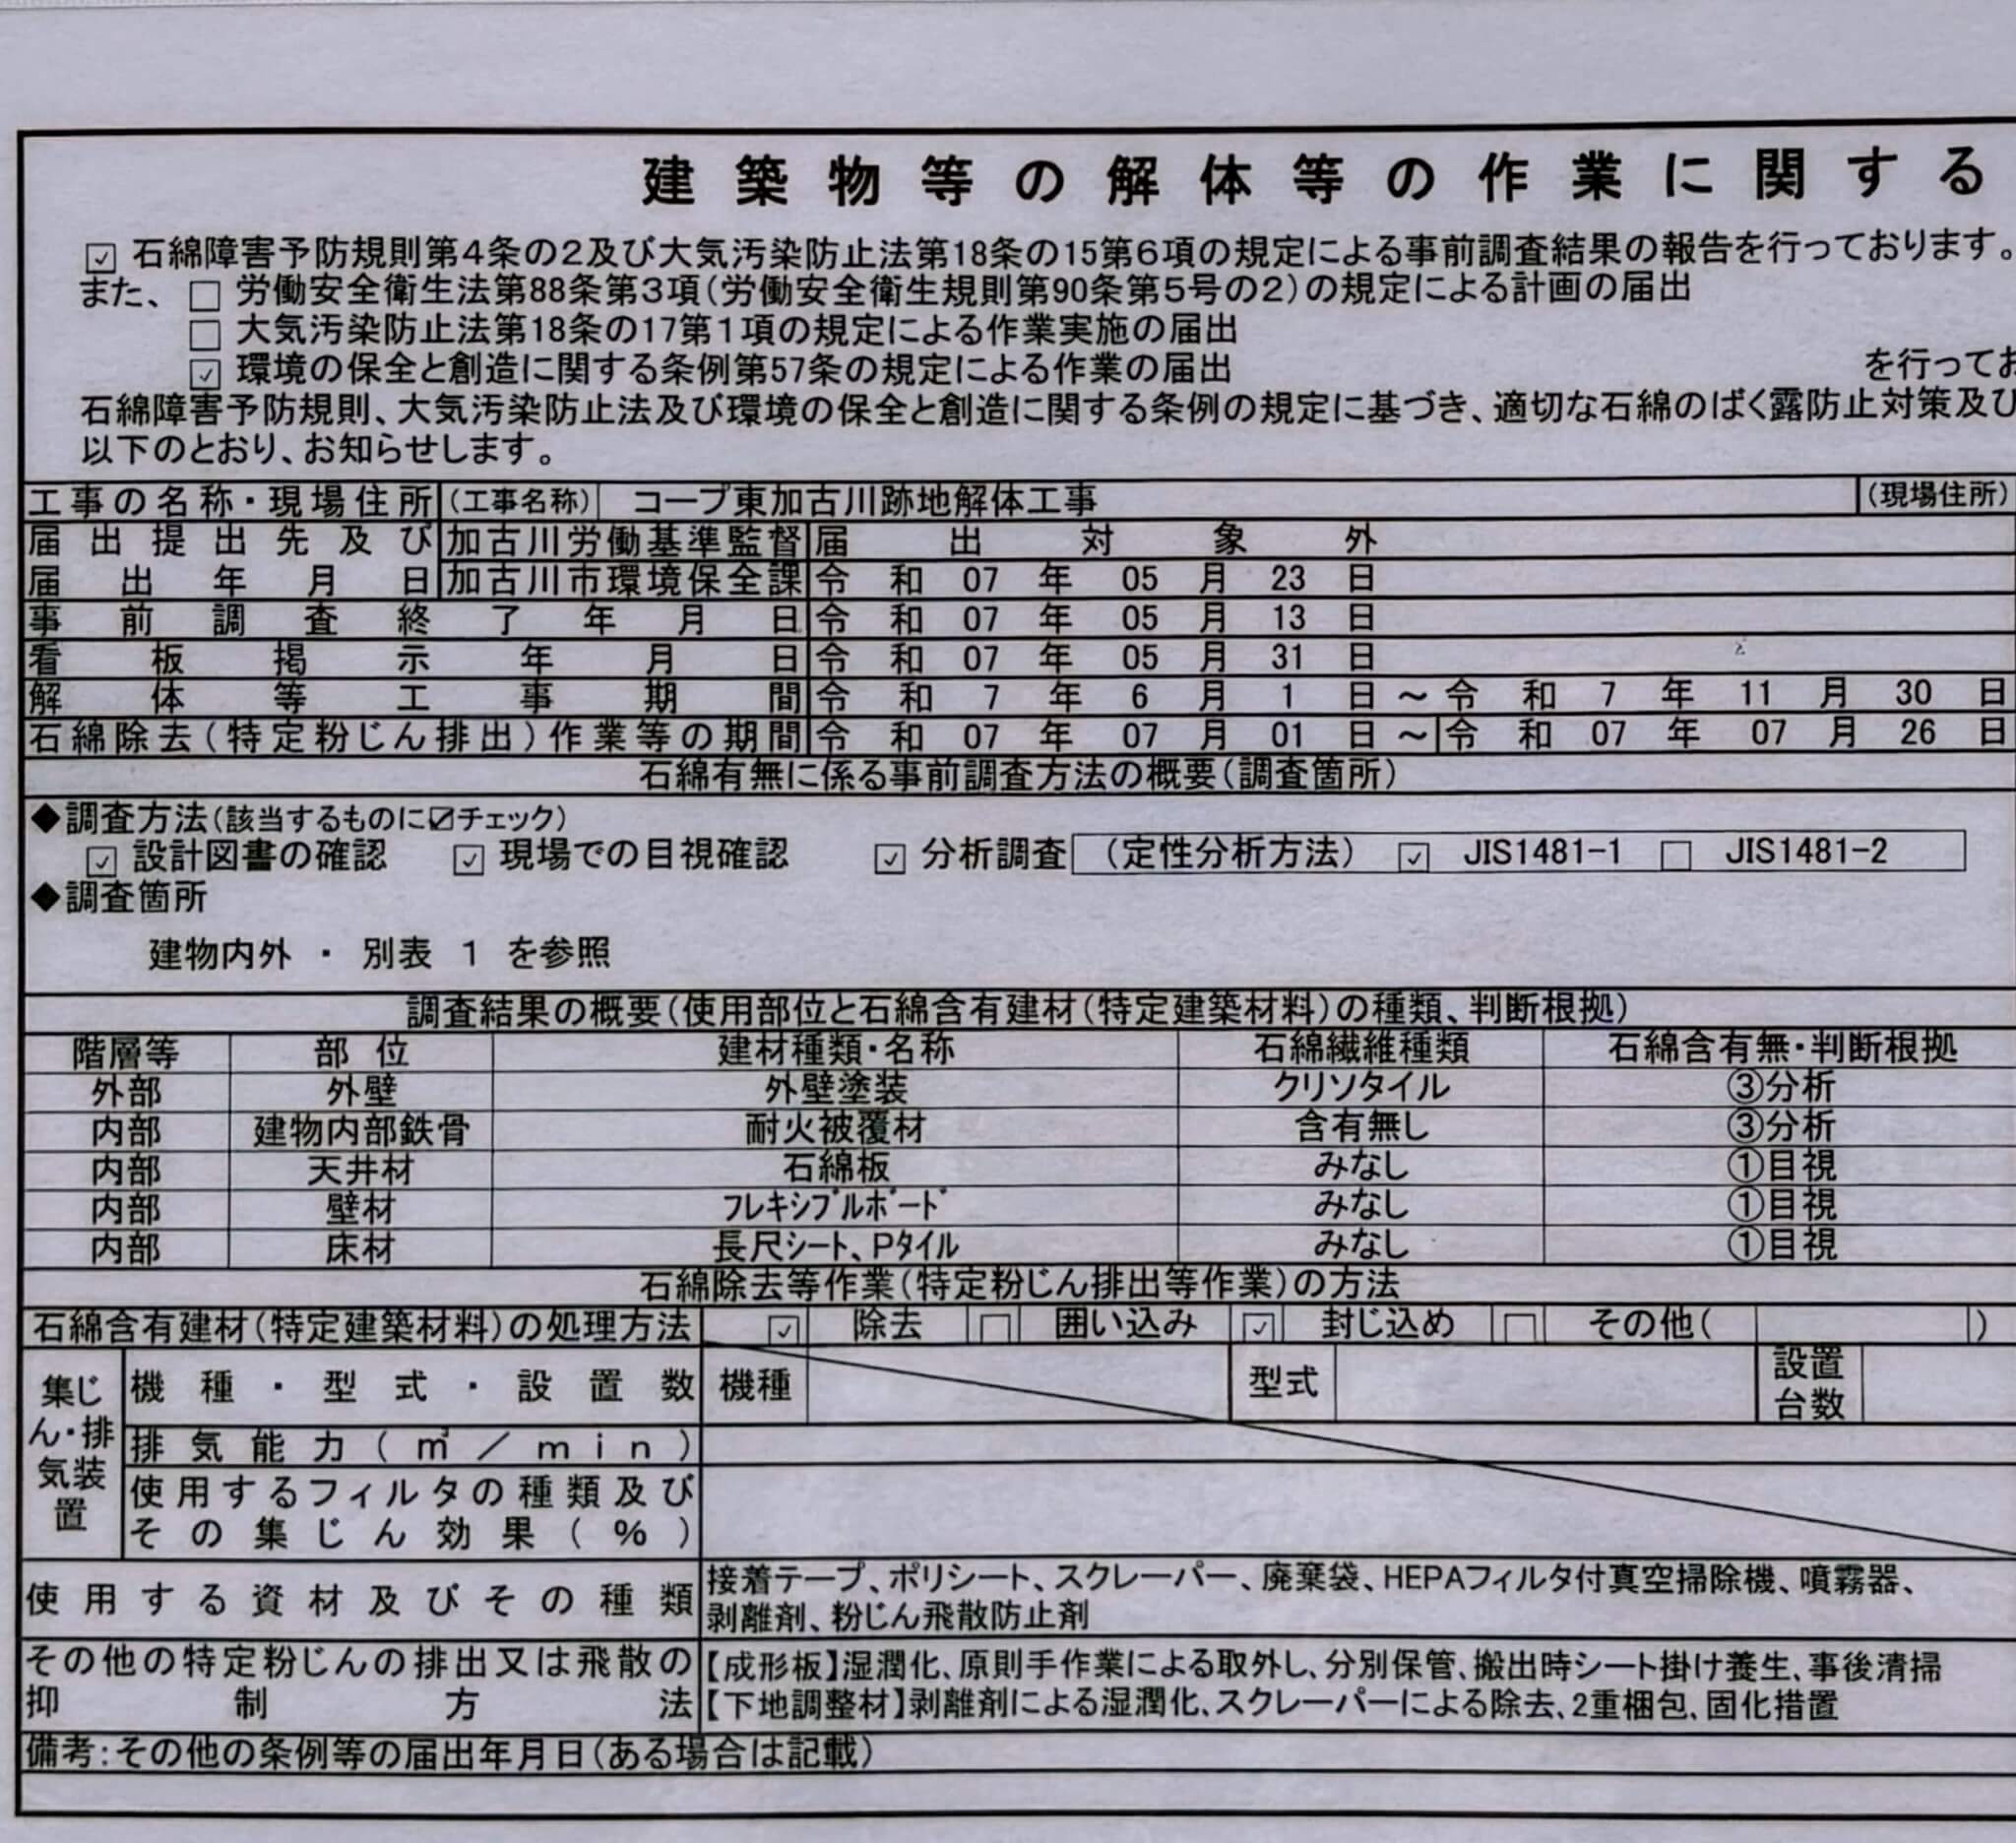 建築物等の解体等の作業に関する
☑ 石綿障害予防規則第4条の2及び大気汚染防止法第18条の15第6項の規定による事前調査結果の報告を行っております。
また、 □ 労働安全衛生法第88条第3項(労働安全衛生規則第90条第5号の2)の規定による計画の届出
□ 大気汚染防止法第18条の17第1項の規定による作業実施の届出
☑ 環境の保全と創造に関する条例第57条の規定による作業の届出 を行ってお
石綿障害予防規則、大気汚染防止法及び環境の保全と創造に関する条例の規定に基づき、適切な石綿のばく露防止対策及び
以下のとおり、お知らせします。
工事の名称・現場住所 (工事名称) コープ東加古川跡地解体工事 (現場住所)
届出提出先及び 加古川労働基準監督 届出対象外
届出年月日 加古川市環境保全課 令和07年05月23日
事前調査終了年月日 令和07年05月13日
看板掲示年月日 令和07年05月31日
解体等工事期間 令和7年6月1日～令和7年11月30日
石綿除去(特定粉じん排出)作業等の期間 令和07年07月01日～令和07年07月26日
石綿有無に係る事前調査方法の概要(調査箇所)
◆調査方法(該当するものに☑チェック)
☑ 設計図書の確認 ☑ 現場での目視確認 ☑ 分析調査 (定性分析方法) ☑ JIS1481-1 □ JIS1481-2
◆調査箇所
建物内外 ・ 別表 1 を参照
調査結果の概要(使用部位と石綿含有建材(特定建築材料)の種類、判断根拠)
階層等 部位 建材種類・名称 石綿繊維種類 石綿含有無・判断根拠
外部 外壁 外壁塗装 クリソタイル ③分析
内部 建物内部鉄骨 耐火被覆材 含有無し ③分析
内部 天井材 石綿板 みなし ①目視
内部 壁材 ﾌﾚｷｼﾌﾞﾙﾎﾞｰﾄﾞ みなし ①目視
内部 床材 長尺シート、Pﾀｲﾙ みなし ①目視
石綿除去等作業(特定粉じん排出等作業)の方法
石綿含有建材(特定建築材料)の処理方法 ☑ 除去 □ 囲い込み ☑ 封じ込め □ その他( )
集じん・排気装置
機種・型式・設置数 機種 型式 設置台数
排気能力(㎥/min)
使用するフィルタの種類及び
その集じん効果(%)
使用する資材及びその種類 接着テープ、ポリシート、スクレーパー、廃棄袋、HEPAフィルタ付真空掃除機、噴霧器、
剥離剤、粉じん飛散防止剤
その他の特定粉じんの排出又は飛散の 【成形板】湿潤化、原則手作業による取外し、分別保管、搬出時シート掛け養生、事後清掃
抑制方法 【下地調整材】剥離剤による湿潤化、スクレーパーによる除去、2重梱包、固化措置
備考:その他の条例等の届出年月日(ある場合は記載)